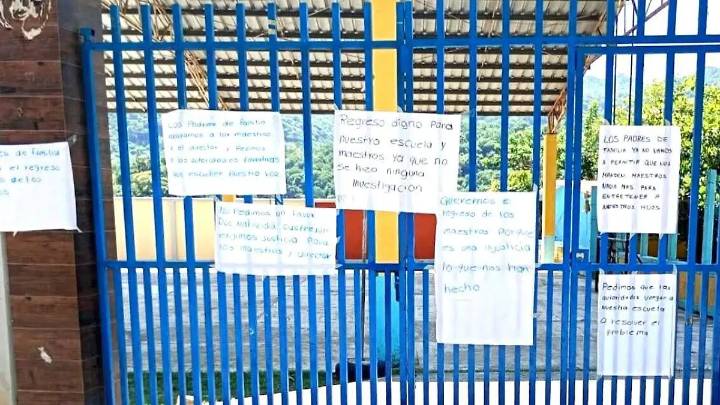 de familia
el regreso
de los
Los Padres de familia
apoyamos a los maestros
y el director y Pedimos
a las autoridades
escuchar nuestra voz
No Pedimos un favor
exigimos Justicia Para
los maestros y director
Regreso digno Para
nuestra escuela y
maestros ya que no
se hizo ninguna
Investigación
Queremos el
regreso de los
maestros Porque
es una injusticia
lo que nos han
hecho
LOS PADRES DE
FAMILIA YA NO VAMOS
A PERMITIR QUE NOS
MANDEN MAESTROS
NADA MAS PARA
ENTRETENER A
NUESTROS HIJOS
Pedimos que las
autoridades vengan a
nuestra escuela
A resolver el
problema